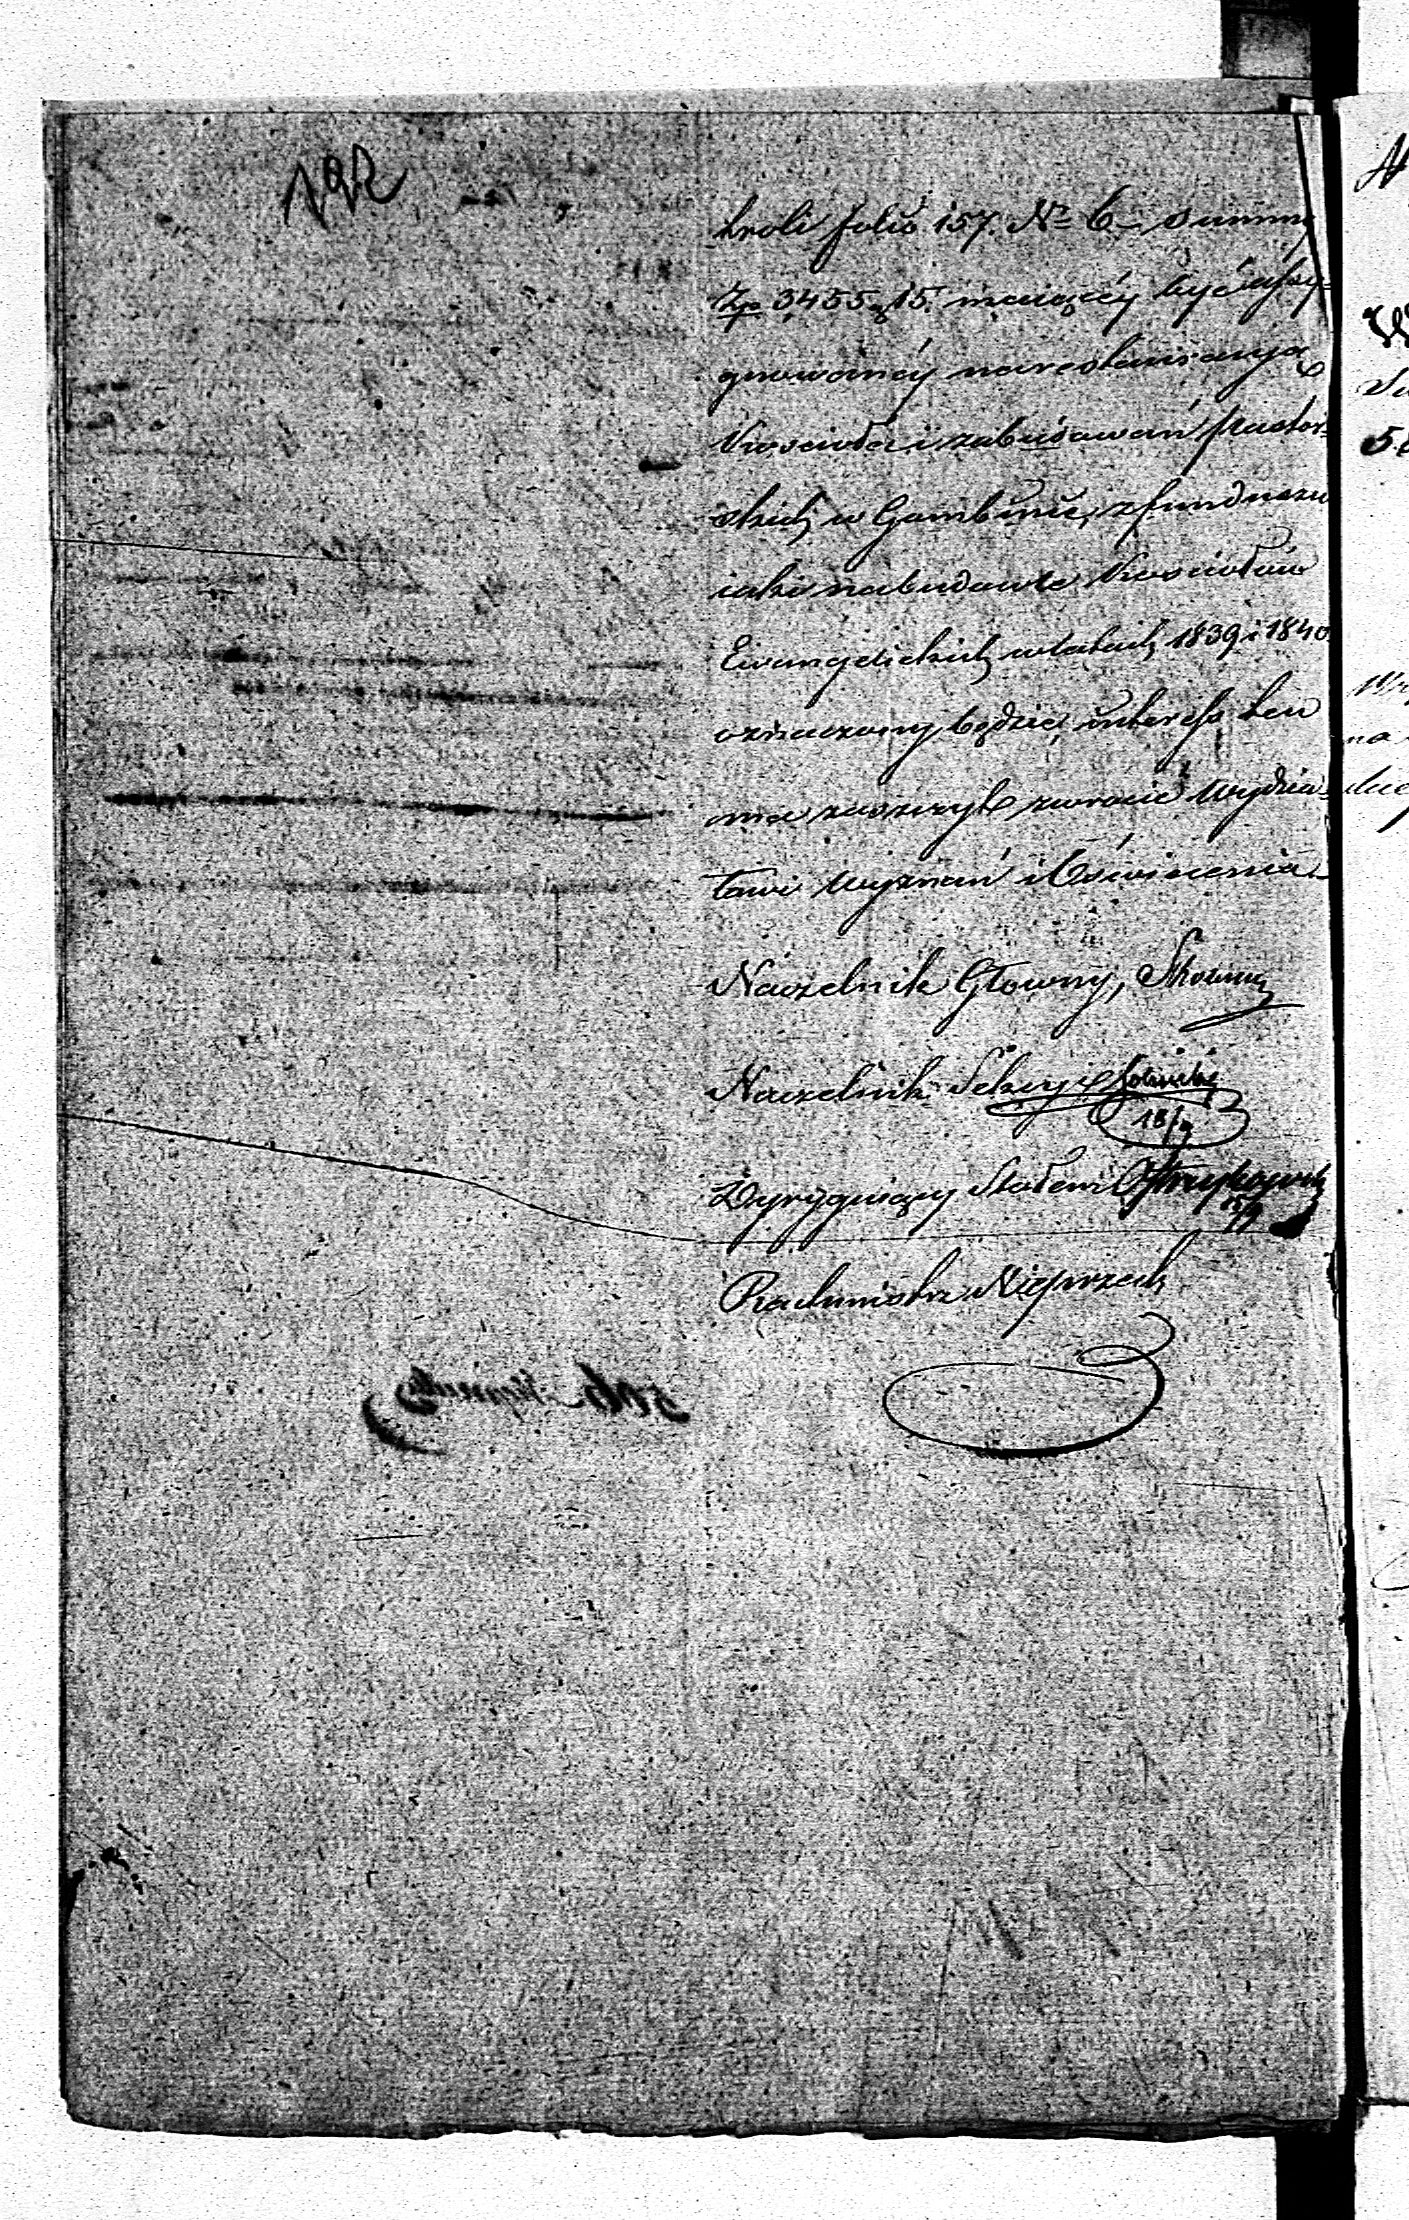 192
troli folio 157. Nr 6 - summy
Zp 3455 g 15. maiącéy być assy-
gnowanéy na restauracyją
Kościoła i zabudowań pastor-
skich w Gombinie, z funduszu
iaki na budowle Kościołów
Ewangelickich w latach 1839 i 1840
oznaczony będzie, interess ten
ma zaszczyt zwrócić Wydzia-
łowi Wyznań i Oświecenia.
Naczelnik Główny,
Naczelnik Sekcyi
18/9
Dyryguiący Stołem
Rachmistrz